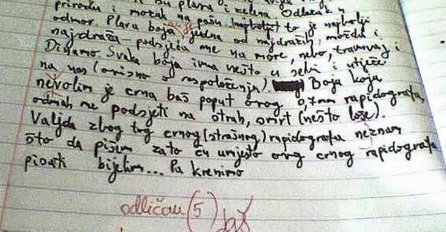 su plava i zelena. Odlazak u
prirodu i motak na pašu to je najbolji
odmor Plava boja jedna od najdražih, možda i
najdraža podsjeća me na more, nebo, tramvaj i
Dinamo Svaka boja ima nešto u sebi i utječe
na nas (ovisno o raspoloženju) Boju koju
nevolim je crna baš poput ovog 0,7mm rapidografa
odmah me podsjeti na strah, smrt (nešto loše).
Valjda zbog tog crnog (strašnog) rapidografa neznam
što da pišem zato ću umjesto ovog crnog rapidografa
pisati bijelim... Pa krenimo
odličan (5)